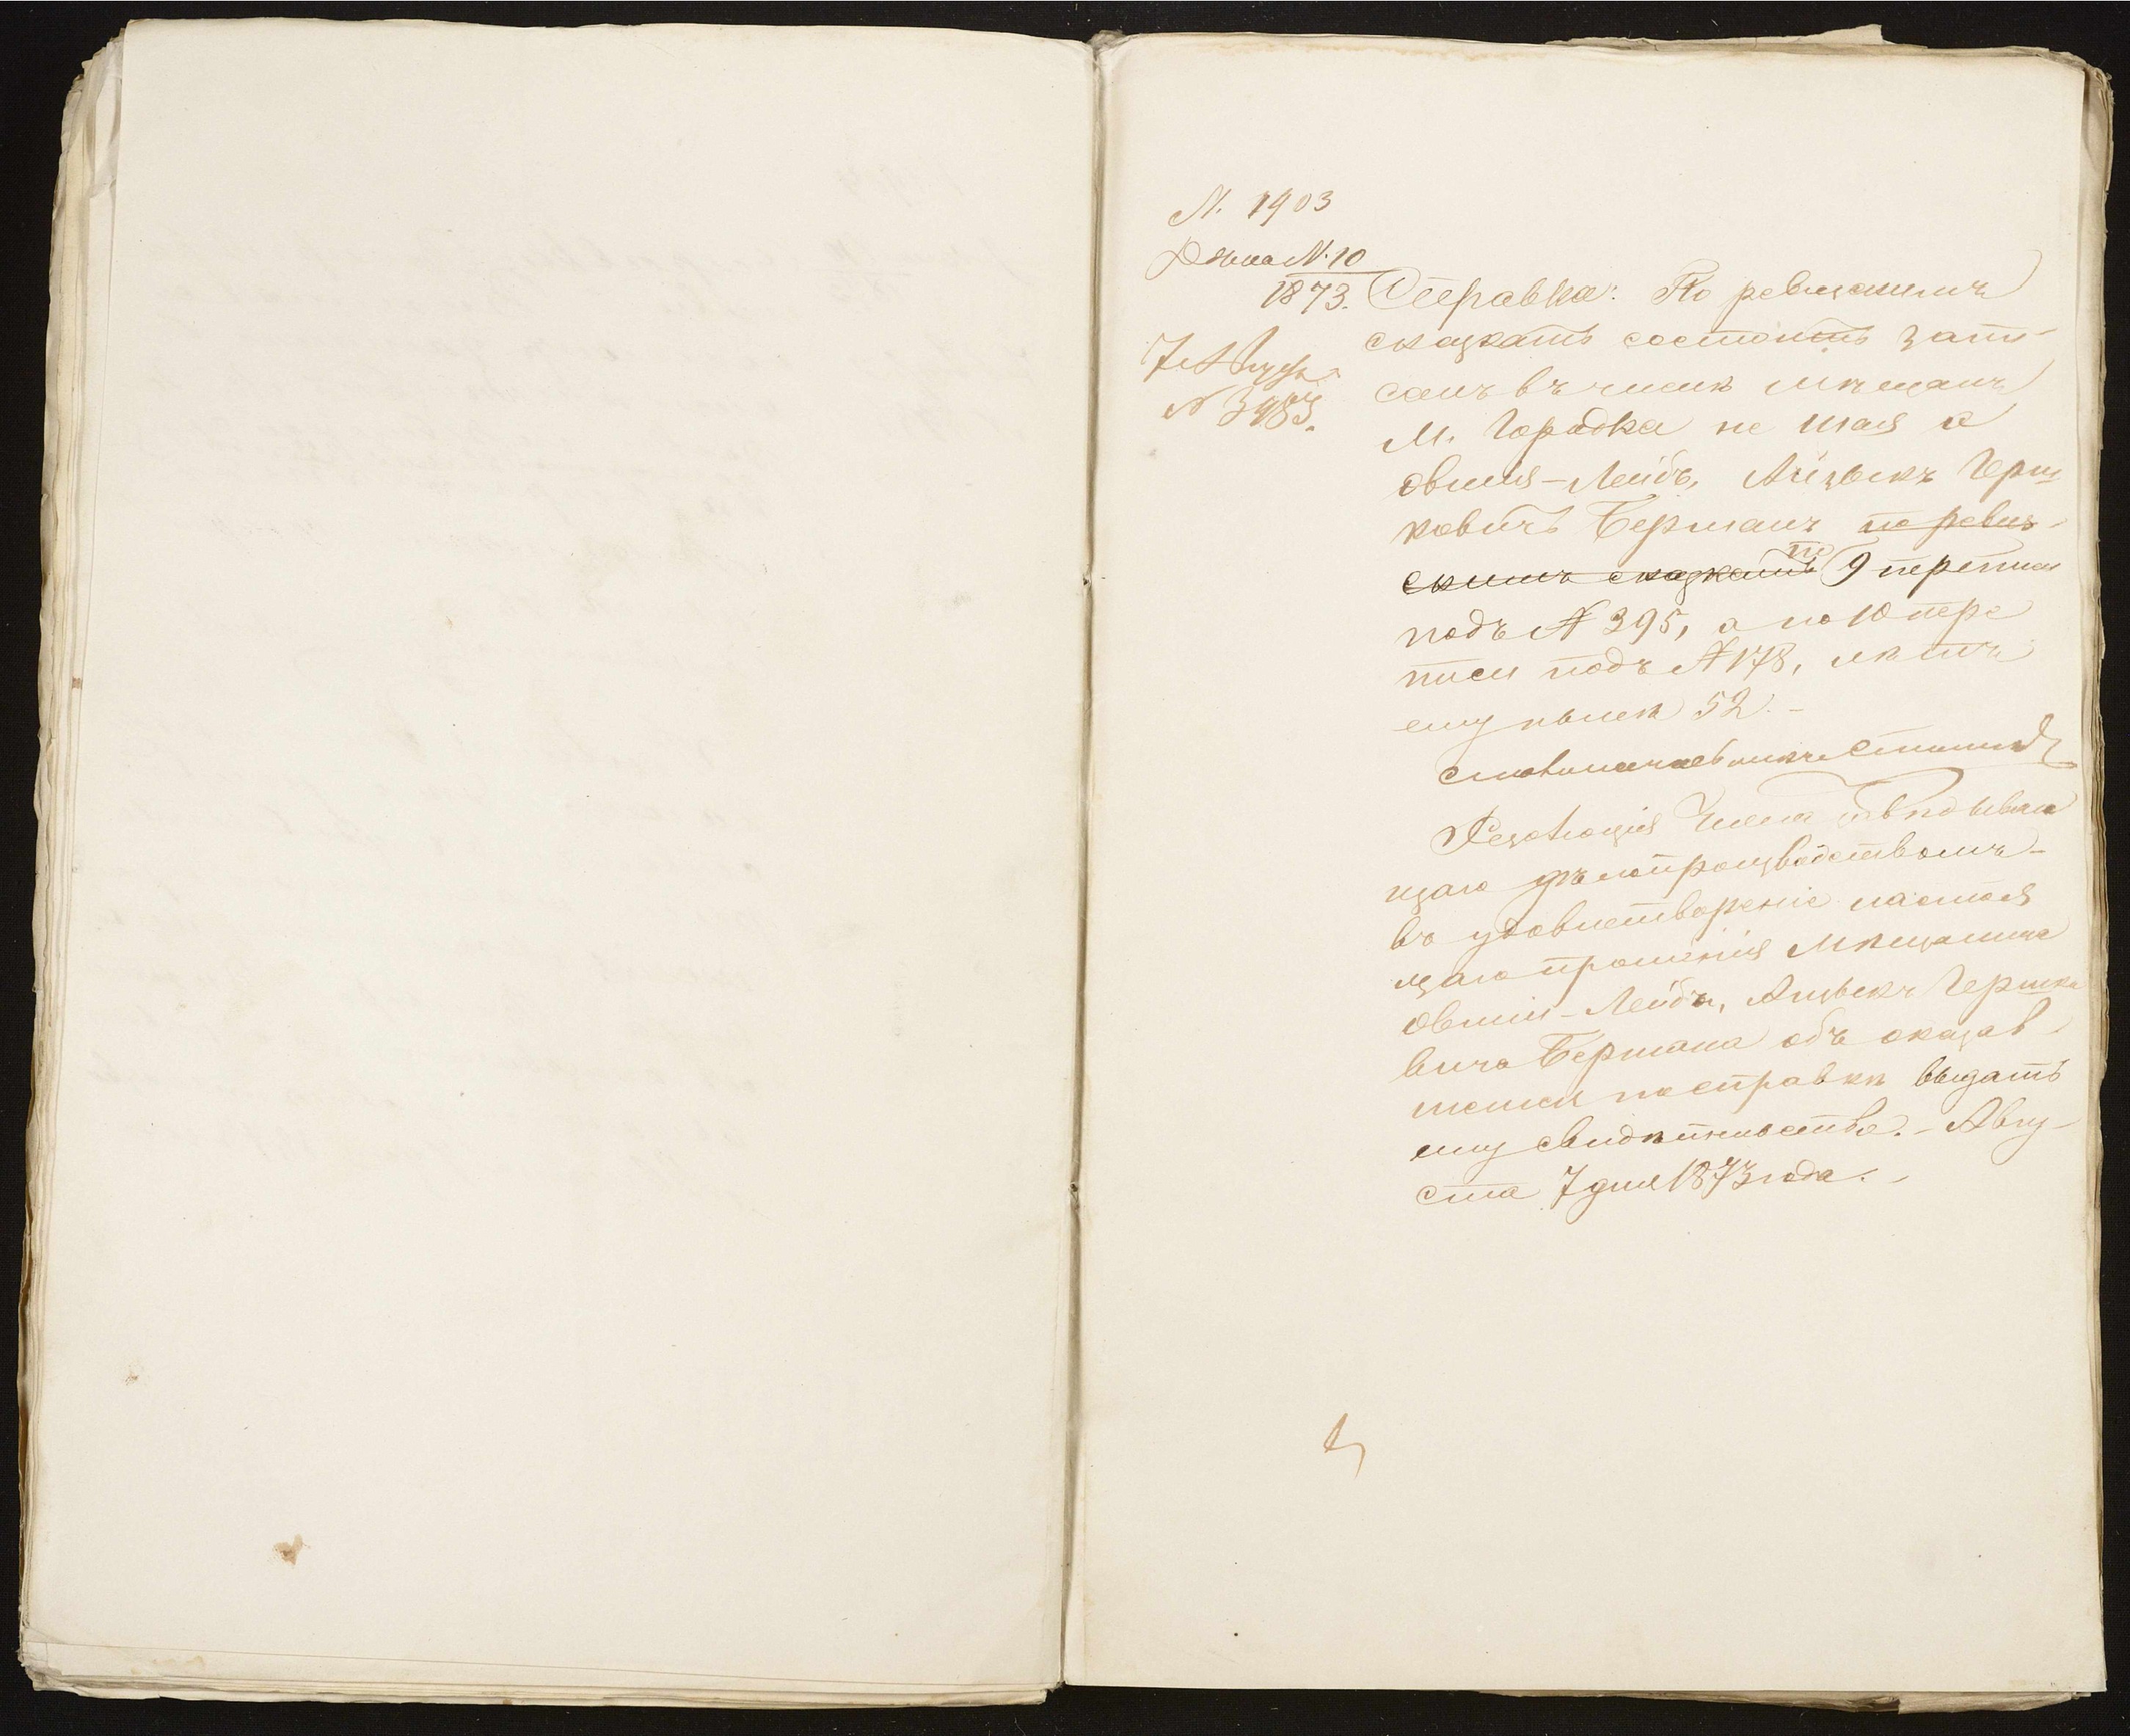 N. 1903
Дѣла N. 10
1873.
7 Августа
N 3983.
Справка: По ревизскимъ
сказкамъ состоитъ запи-
санъ въ числѣ мѣщанъ
М. Городка не Шая а
Овшія-Лейбъ, Айзыкъ Герш
ковичъ Берманъ по ревиз-
скимъ сказкамъ по 9 переписи
подъ N 395, а по 10 пере
писи подъ N 178, лѣтъ
ему нынѣ 52.-
Столоначальникъ
Резолюція Члена завѣдываю
щаго дѣлопроизводствомъ-
въ удовлетвореніе настоя
щаго прошенія Мѣщанина
Овшіи-Лейбы, Айзыкъ Гершко
вича Бермана объ оказав
шемся по справкѣ выдать
ему свидѣтельство.- Авгу-
ста 7 дня 1873 года.-